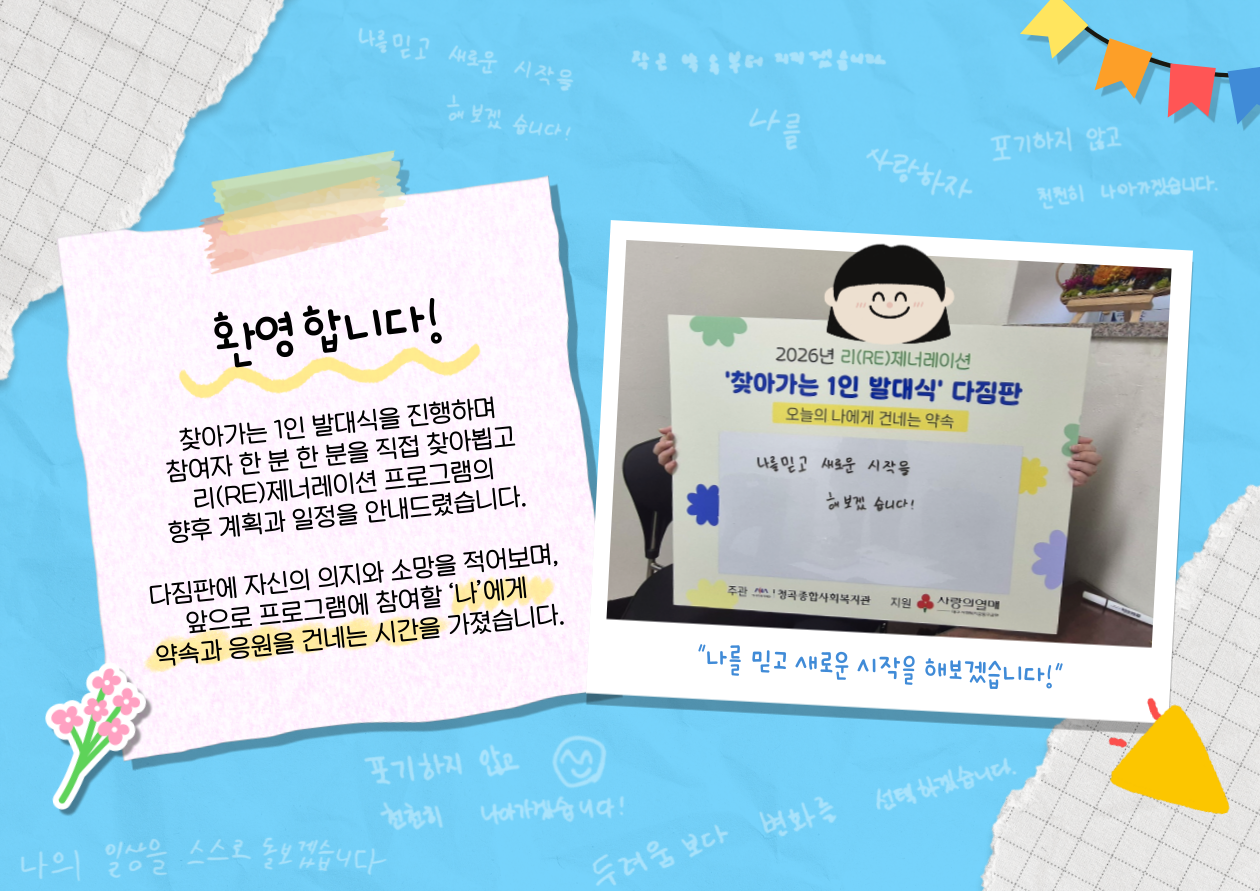 나를 믿고 새로운 시작을
해보겠습니다!
작은 약속부터 지키겠습니다.
나를
사랑하자
포기하지 않고
천천히 나아가겠습니다.
환영합니다!
찾아가는 1인 발대식을 진행하며
참여자 한 분 한 분을 직접 찾아뵙고
리(RE)제너레이션 프로그램의
향후 계획과 일정을 안내드렸습니다.
다짐판에 자신의 의지와 소망을 적어보며,
앞으로 프로그램에 참여할 ‘나’에게
약속과 응원을 건네는 시간을 가졌습니다.
2026년 리(RE)제너레이션
'찾아가는 1인 발대식' 다짐판
오늘의 나에게 건네는 약속
나를믿고 새로운 시작을
해보겠습니다!
주관 청곡종합사회복지관 지원 사랑의열매
"나를 믿고 새로운 시작을 해보겠습니다!"
포기하지 않고
천천히 나아가겠습니다!
나의 일상을 스스로 돌보겠습니다
두려움보다 변화를 선택하겠습니다.